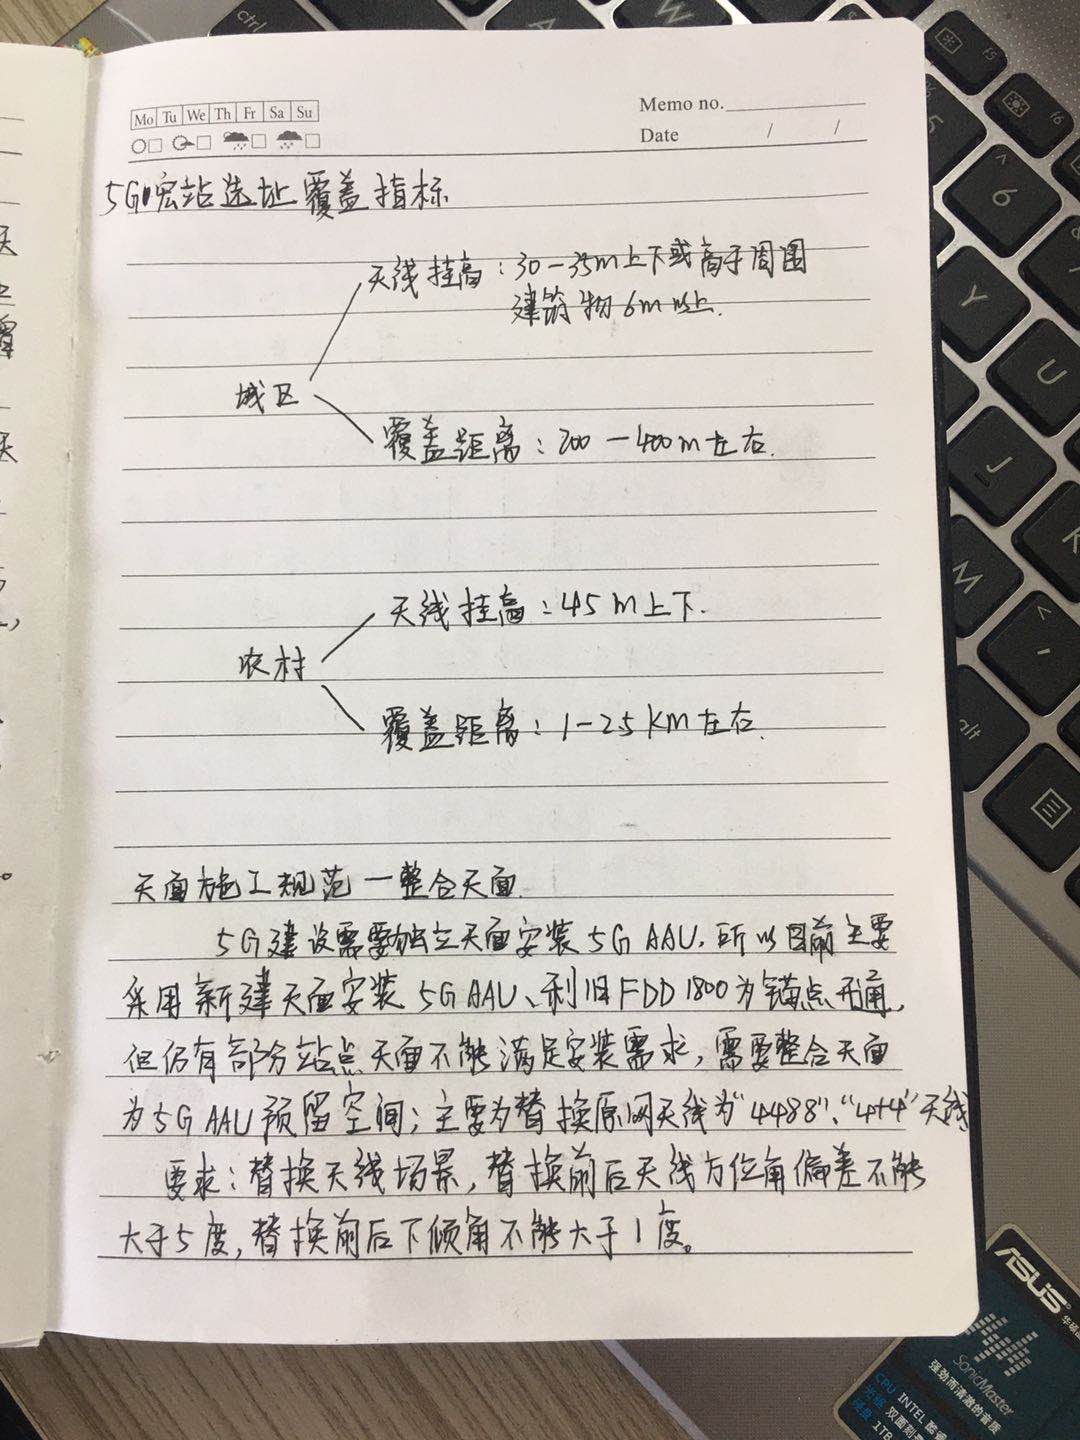 Mo Tu We Th Fr Sa Su
Memo no.
Date / /
5G宏站选址覆盖指标
天线挂高：30-35m上下或高于周围
建筑物6m以上.
城区
覆盖距离：200-400m左右.
天线挂高：45m上下.
农村
覆盖距离：1-25km左右.
天面施工规范—整合天面.
5G建设需要独立天面安装5G AAU，所以目前主要
采用新建天面安装5G AAU、利旧FDD1800为锚点开通，
但仍有部分站点天面不能满足安装需求，需要整合天面
为5G AAU预留空间；主要为替换原网天线为“4488”、“4+4”天线
要求：替换天线场景，替换前后天线方位角偏差不能
大于5度，替换前后下倾角不能大于1度。
ctrl
A
W
F5
F6
5
^
6
Y
U
J
K
M
<
,
alt
ASUS 华硕
SonicMaster
强劲而清澈的音质
CPU INTEL 酷
双面刻
1TB